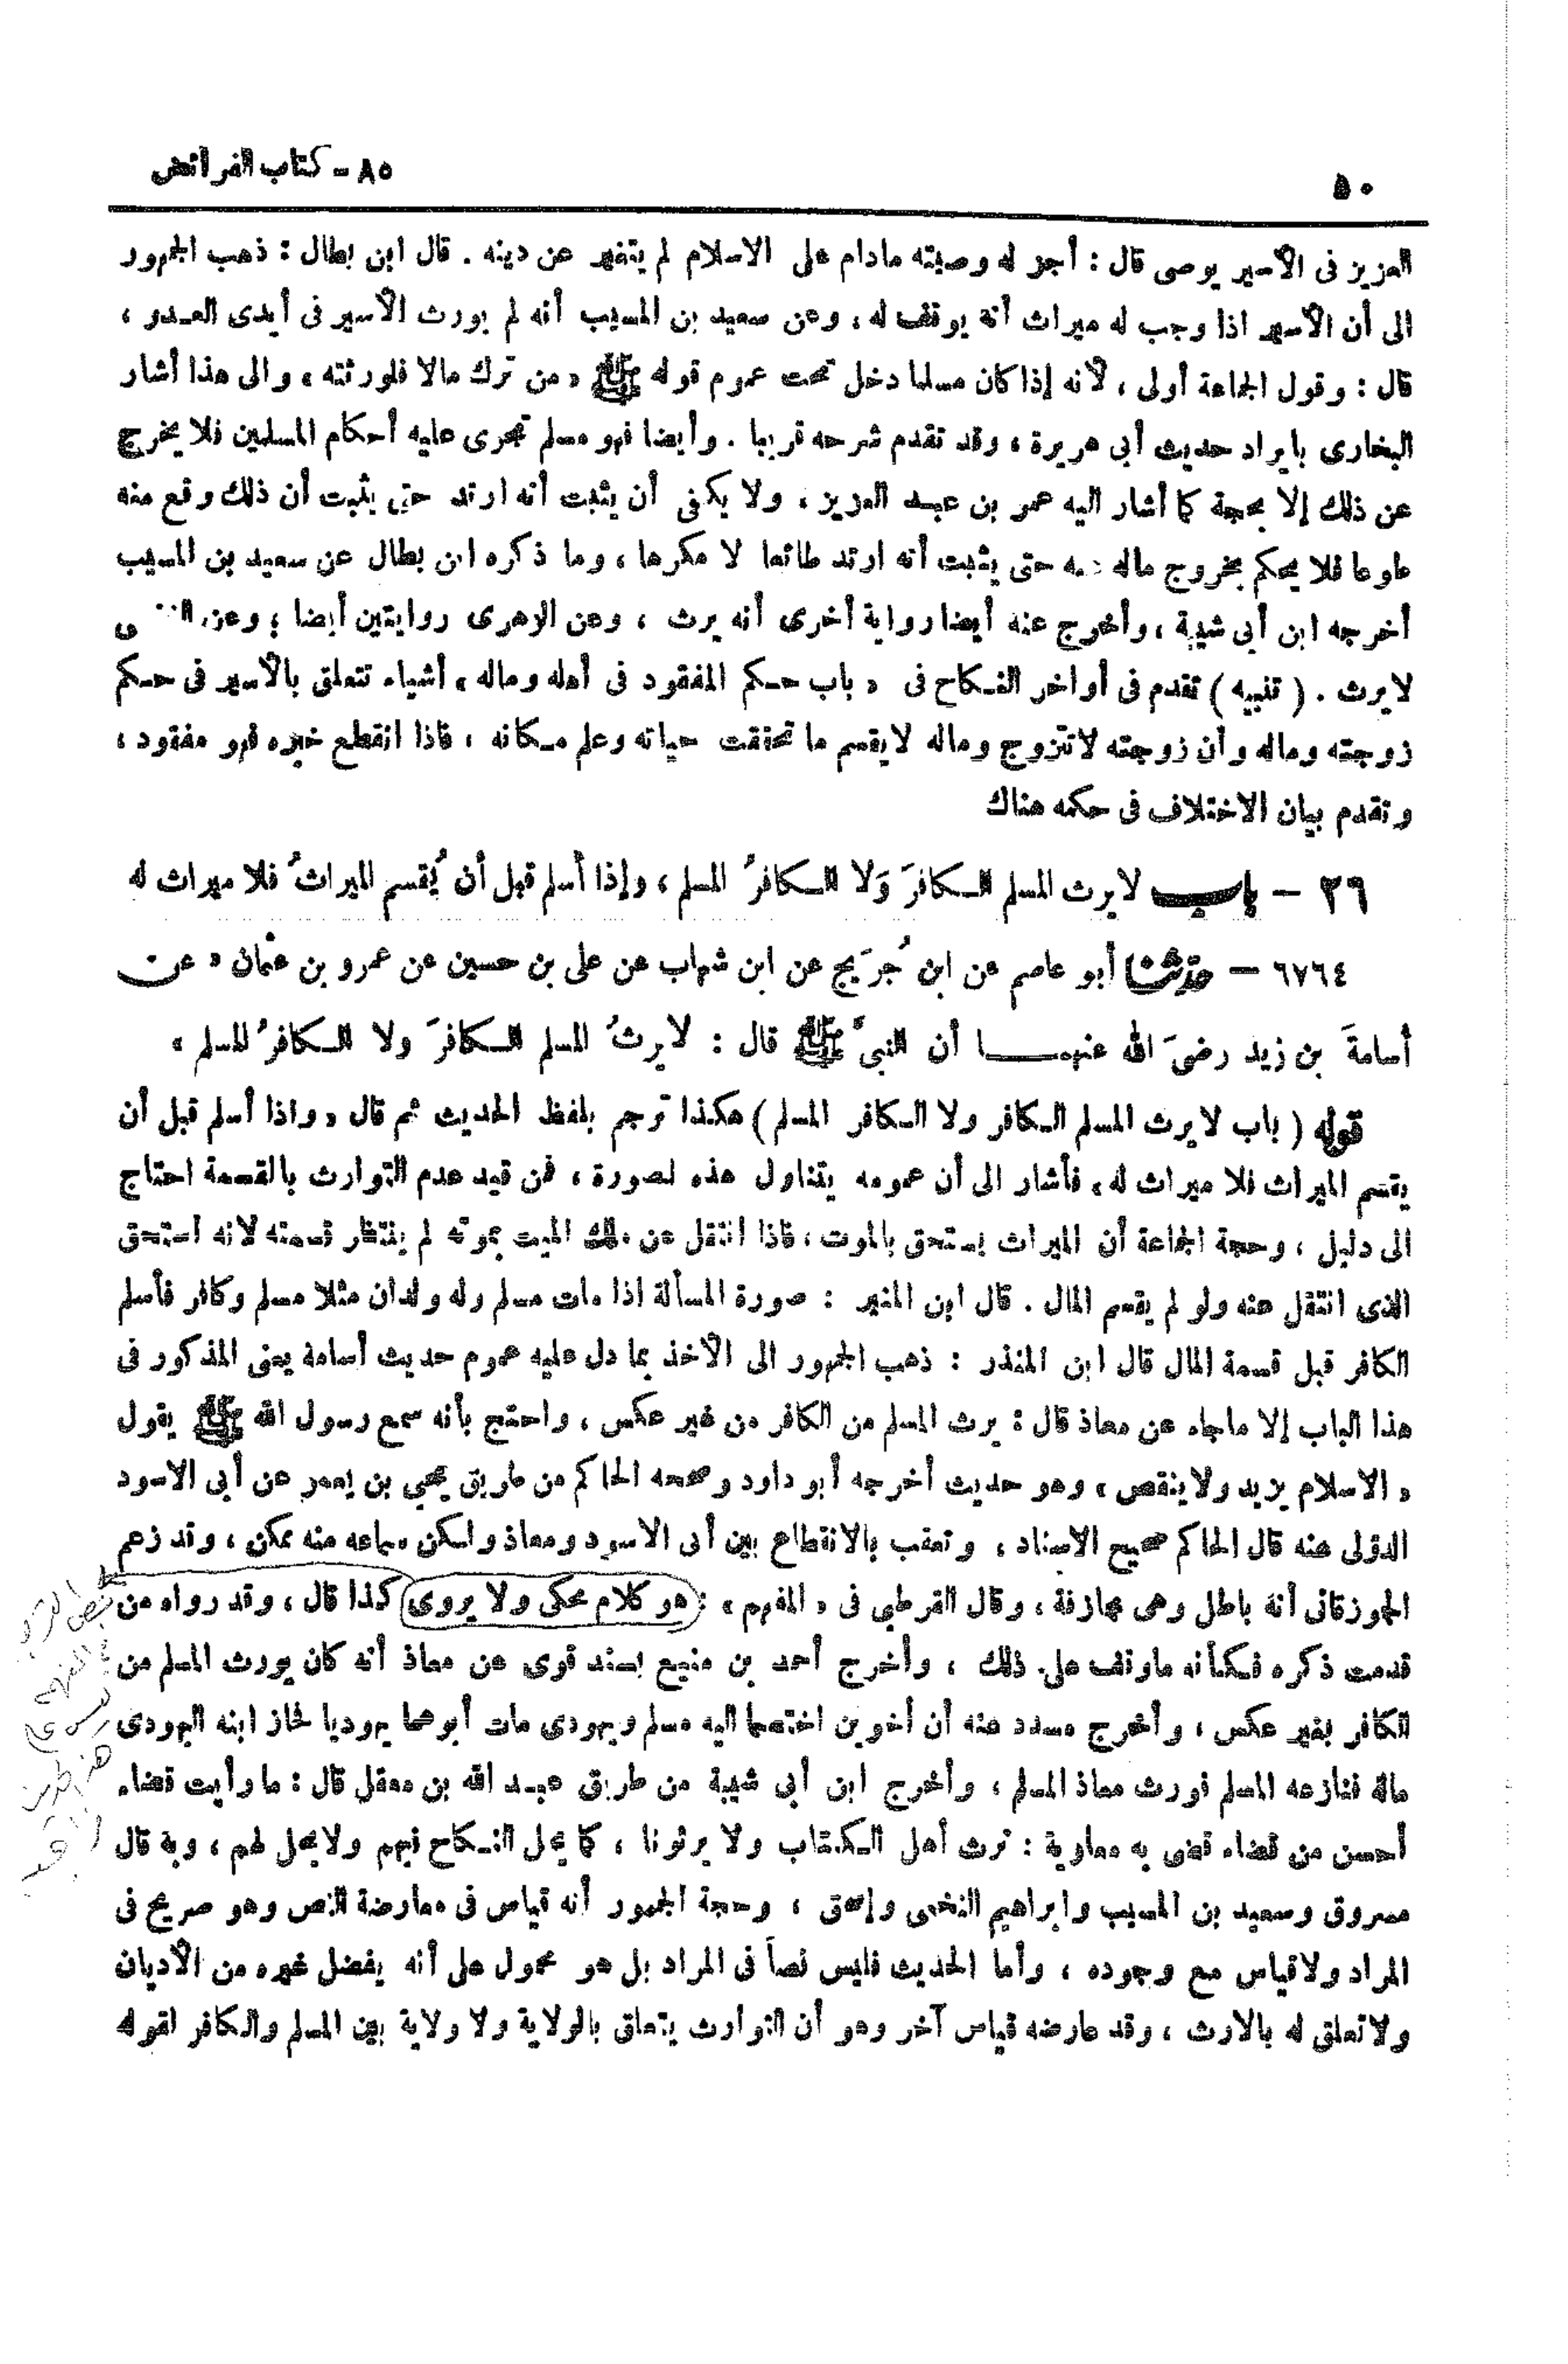 ٥٠
٨٥ - كتاب الفرائض
العزيز فى الأسير يوصى قال : أجز له وصيته مادام على الاسلام لم يتغير عن دينه . قال ابن بطال : ذهب الجمهور
الى أن الأسير اذا وجب له ميراث أنه يوقف له ، وعن سعيد بن المسيب أنه لم يورث الأسير فى أيدى العدو ،
قال : وقول الجماعة أولى ، لأنه إذا كان مسلما دخل تحت عموم قوله ﷺ « من ترك مالا فلورثته » والى هذا أشار
البخارى بايراد حديث أبى هريرة ، وقد تقدم شرحه قريبا . وأيضا فهو مسلم تجرى عليه أحكام المسلمين فلا يخرج
عن ذلك إلا بحجة كما أشار اليه عمر بن عبد العزيز ، ولا يكفى أن يثبت أنه ارتد حتى يثبت أن ذلك وقع منه
طوعا فلا يحكم بخروج ماله عنه حتى يثبت أنه ارتد طائعا لا مكرها ، وما ذكره ابن بطال عن سعيد بن المسيب
أخرجه ابن أبى شيبة ، وأخرج عنه أيضا رواية أخرى أنه يرث ، وعن الزهرى روايتين أيضا ؛ وعن
لا يرث . ( تنبيه ) تقدم فى أواخر النكاح فى « باب حكم المفقود فى أهله وماله » أشياء تتعلق بالأسير فى حكم
زوجته وماله وأن زوجته لاتتزوج وماله لايقسم ما تحققت حياته وعلم مكانه ، فاذا انقطع خبره فهو مفقود ،
وتقدم بيان الاختلاف فى حكمه هناك
٢٦ - باب لا يرث المسلم الكافرَ وَلا الكافرُ المسلم ، وإذا أسلم قبل أن يُقسم الميراثُ فلا ميراث له
٦٧٦٤ - حدثنا أبو عاصم عن ابن جُرَيج عن ابن شهاب عن على بن حسين عن عمرو بن عثمان « عن
أسامةَ بن زيد رضىَ الله عنهما أن النبىَّ ﷺ قال : لا يرثُ المسلم الكافرَ ولا الكافرُ المسلم »
قوله ( باب لا يرث المسلم الكافر ولا الكافر المسلم ) هكذا ترجم بلفظ الحديث ثم قال « واذا أسلم قبل أن
يقسم الميراث فلا ميراث له » فأشار الى أن عمومه يتناول هذه لصورة ، فمن قيد عدم التوارث بالقسمة احتاج
الى دليل ، وحجة الجماعة أن الميراث يستحق بالموت ، فاذا انتقل عن ملك الميت بموته لم ينتظر قسمته لانه استحق
الذى انتقل عنه ولو لم يقسم المال . قال ابن المنير : صورة المسألة اذا مات مسلم وله ولدان مثلا مسلم وكافر فأسلم
الكافر قبل قسمة المال قال ابن المنذر : ذهب الجمهور الى الأخذ بما دل عليه عموم حديث أسامة يعنى المذكور فى
هذا الباب إلا ماجاء عن معاذ قال : يرث المسلم من الكافر من غير عكس ، واحتج بأنه سمع رسول الله ﷺ يقول
« الاسلام يزيد ولاينقص » وهو حديث أخرجه أبو داود وصححه الحاكم من طريق يحيى بن يعمر عن أبى الاسود
الدؤلى عنه قال الحاكم صحيح الاسناد ، وتعقب بالانقطاع بين أبى الاسود ومعاذ ولكن سماعه منه ممكن ، وقد زعم
الجوزقانى أنه باطل وهى مجازفة ، وقال القرطبى فى « المفهم » : هو كلام محكى ولا يروى كذا قال ، وقد رواه من
قدمت ذكره فكأنه ماوقف على ذلك ، وأخرج أحمد بن منيع بسند قوى عن معاذ أنه كان يورث المسلم من
الكافر بغير عكس ، وأخرج مسدد عنه أن أخوين اختصما اليه مسلم ويهودى مات أبوهما يهوديا فحاز ابنه اليهودى
ماله فنازعه المسلم فورث معاذ المسلم ، وأخرج ابن أبى شيبة من طريق عبد الله بن معقل قال : ما رأيت قضاء
أحسن من قضاء قضى به معاوية : نرث أهل الكتاب ولا يرثونا ، كما يحل النكاح فيهم ولا يحل لهم ، وبه قال
مسروق وسعيد بن المسيب وابراهيم النخعى وإسحق ، وحجة الجمهور أنه قياس فى معارضة النص وهو صريح فى
المراد ولا قياس مع وجوده ، وأما الحديث فليس نصاً فى المراد بل هو محمول على أنه يفضل غيره من الأديان
ولا تعلق له بالارث ، وقد عارضه قياس آخر وهو أن التوارث يتعلق بالولاية ولا ولاية بين المسلم والكافر لقوله